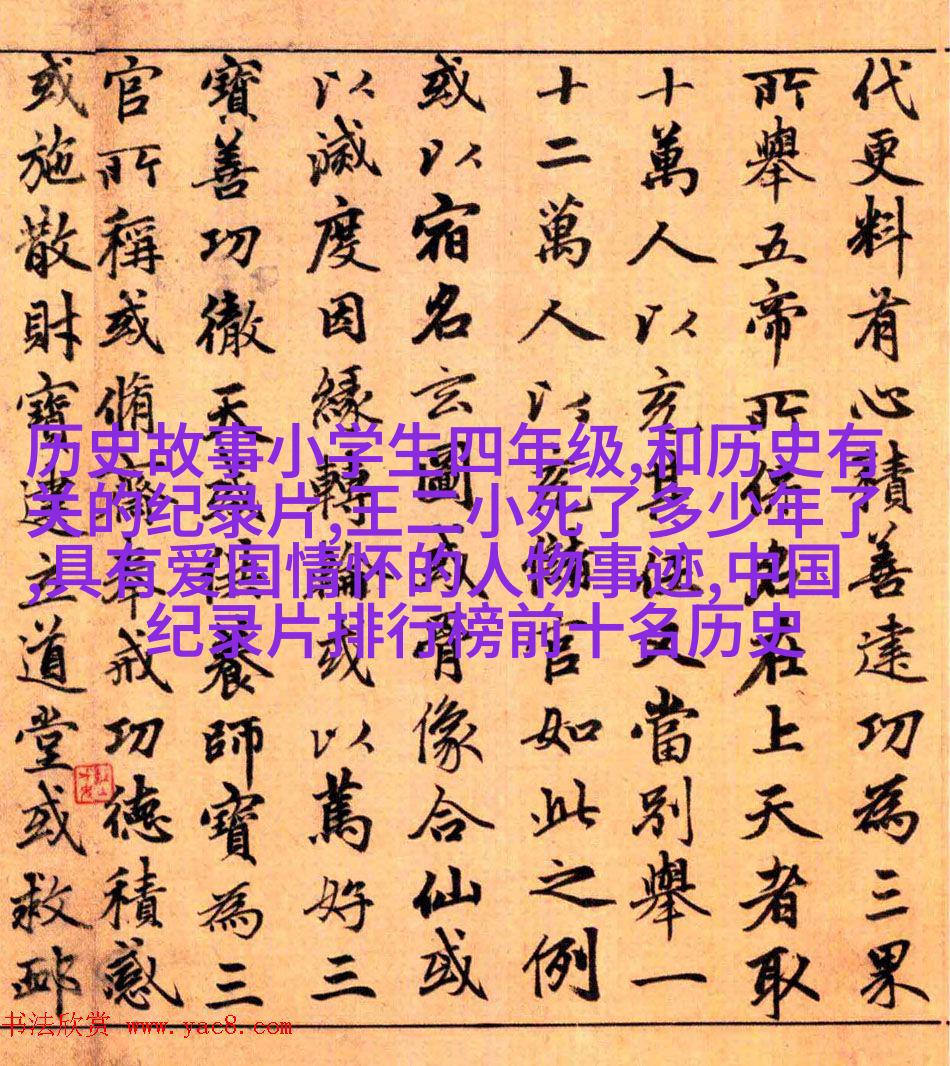 代更料有心積善達功為三果
所舉五帝所在上天者取
十萬人以亥又當別舉一
十二萬人以官如此之例
或以宿名玄圖或骨像合仙或
以滅度因緣轉輪或以篤好三
寶善功徹天或養師寶為三
官所稱或脩齋奉戒功德積感
或施散財寶建立道堂或救
历史故事小学生四年级,和历史有
关的纪录片,王二小死了多少年了
,具有爱国情怀的人物事迹,中国
纪录片排行榜前十名历史
书法欣赏 www.yac8.com